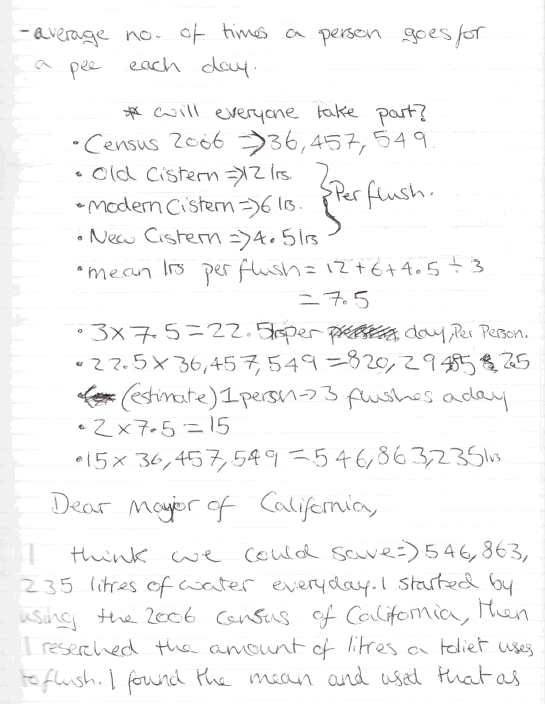 - average no. of times a person goes for
a pee each day.
* will everyone take part?
• Census 2006 => 36,457,549.
• Old Cistern => 12 lrs.
• modern Cistern => 6 lrs. } Per flush.
• New Cistern => 4.5 lrs
• mean lrs per flush = 12 + 6 + 4.5 ÷ 3
= 7.5
• 3 x 7.5 = 22.5 lrs per day, Per Person.
• 22.5 x 36,457,549 = 820,294
(estimate) 1 person -> 3 flushes a day
• 2 x 7.5 = 15
• 15 x 36,457,549 = 546,863,235 lrs
Dear Mayor of California,
I think we could save => 546,863,
235 litres of water everyday. I started by
using the 2006 census of California, then
I reserched the amount of litres a toliet uses
to flush. I found the mean and used that as